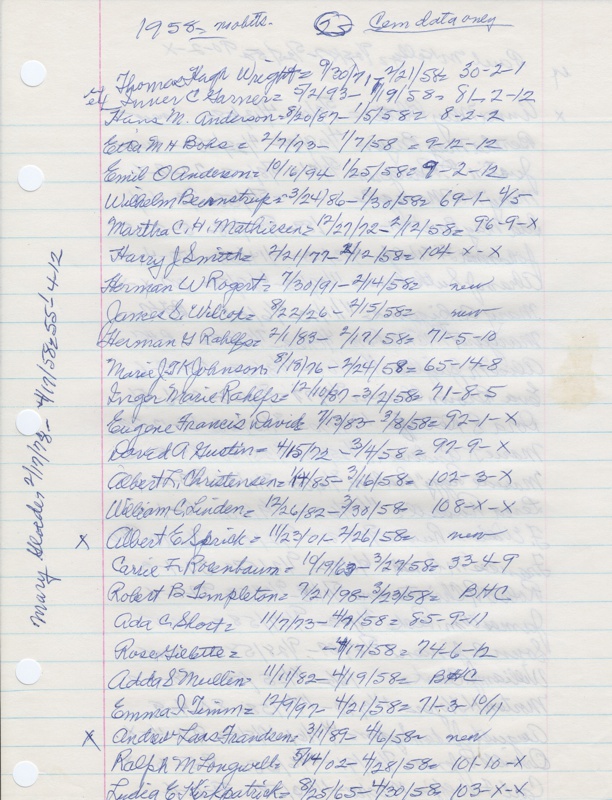 1958 = mobtts. (72) Cem data only
Thomas Hugh Wright = 9/30/71 - 2/21/58 = 30-2-1
Inner C Garner = 5/2/93 - 1/19/58 = 81-2-12
Hans M. Anderson = 8/20/87 - 1/5/58 = 8-2-2
Etta M H Bohs = 2/7/73 - 1/7/58 = 9-12-12
Emil O Anderson = 10/16/94 1/25/58 = 9-2-12
Wilhelm Beernstrup = 3/24/86 - 1/30/58 = 69-1-4/5
Martha C. H. Mathiesen = 12/27/72 - 2/12/58 = 96-9-X
Harry J Smith = 2/21/77 - 2/12/58 = 104-X-X
Herman W Rogert = 7/30/91 - 2/14/58 = new
James S. Wilcox = 8/22/26 - 2/15/58 = new
Herman G Rahlfs = 2/1/83 - 2/17/58 = 71-5-10
Marie J. T. K Johnson = 8/18/76 - 2/24/58 = 65-14-8
Inger Marie Rahlfs = 12/10/87 - 3/2/58 = 71-8-5
Eugene Francis David = 7/13/83 - 3/8/58 = 92-1-X
David A Gustin = 4/15/72 - 3/4/58 = 97-9-X
Albert L. Christensen = 1/4/85 - 3/16/58 = 102-3-X
William C Linden = 12/26/82 - 3/30/58 = 108-X-X
X Albert E Sprick = 11/23/01 - 2/26/58 = new
Carrie F. Rosenbaum = 10/19/63 - 3/27/58 = 33-4-9
Robert B Templeton = 7/21/98 - 3/23/58 = BHC
Ada C Short = 11/7/73 - 4/7/58 = 85-9-11
Rose Gillette = - 4/17/58 = 74-6-12
Adda S Mullen = 11/11/82 - 4/19/58 = BHC
Emma I Timm = 12/9/97 - 4/21/58 = 71-3-10/11
X Andrew Lars Frandsen = 3/1/89 - 4/6/58 = new
Ralph M Longwell = 5/14/02 - 4/28/58 = 101-10-X
Lydia E. Kirkpatrick = 8/25/65 - 4/30/58 = 103-X-X
Mary 2/17/78 = 4/17/58 = 55-4-12